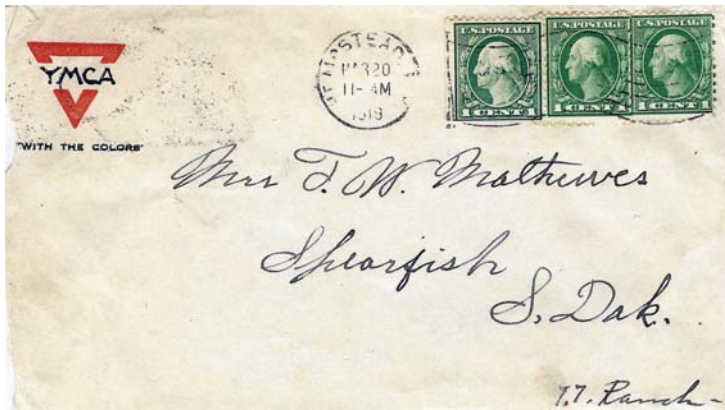 YMCA
"WITH THE COLORS"
HEMPSTEAD
MAR 20
11-AM
1919
U.S. POSTAGE
1 CENT 1
U.S. POSTAGE
1 CENT 1
U.S. POSTAGE
1 CENT 1
Mrs T. W. Mathews
Spearfish
S. Dak.
T.T. Ranch-